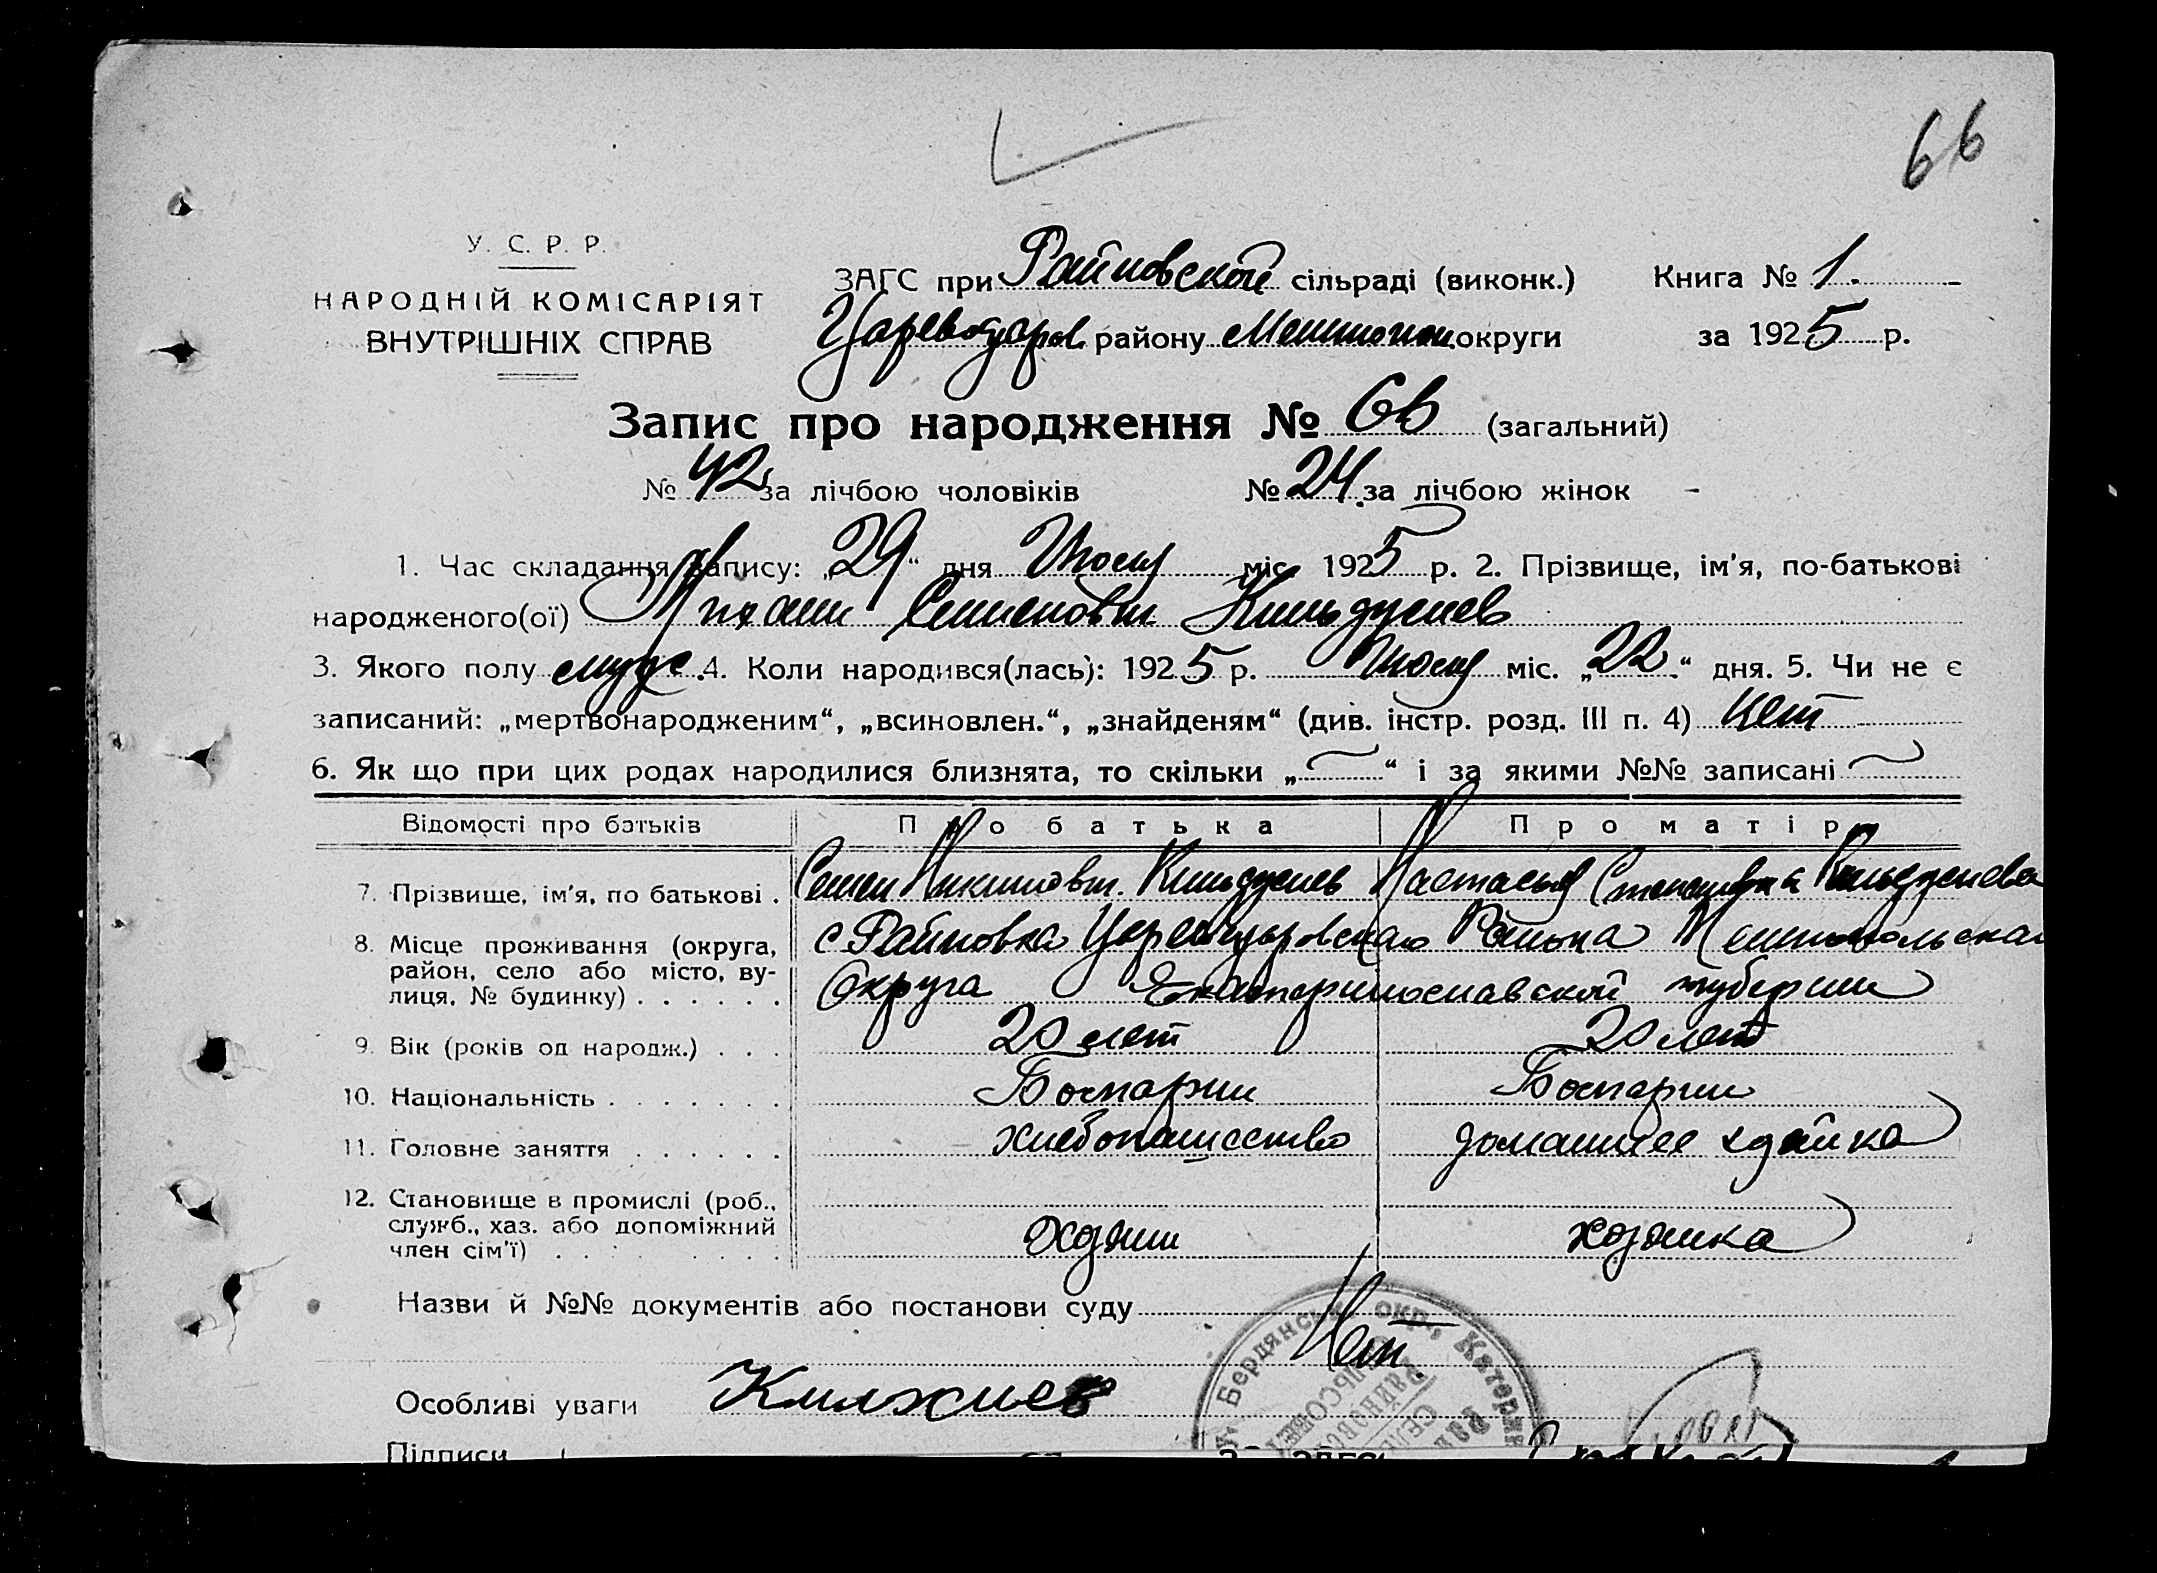 66
У. С. Р. Р.
НАРОДНІЙ КОМІСАРІЯТ
ВНУТРІШНІХ СПРАВ
ЗАГС при Райновской сільраді (виконк.) Книга № 1.
Цареводаров. району Мелитопол. округи за 1925 р.
Запис про народження № 66 (загальний)
№ 42 за лічбою чоловіків № 24 за лічбою жінок
1. Час складання запису: „29“ дня Июля міс. 1925 р. 2. Прізвище, ім'я, по-батькові
народженого(ої) Михаил Семенович
3. Якого полу муж. 4. Коли народився(лась): 1925 р. Июля міс. „22“ дня. 5. Чи не є
записаний: „мертвонародженим“, „всиновлен.“, „знайденям“ (див. інстр. розд. III п. 4) Нет
6. Як що при цих родах народилися близнята, то скільки „ “ і за якими №№ записані
Відомості про батьків Про батька Про матір
7. Прізвище, ім'я, по батькові . Семен Настасья
8. Місце проживання (округа, район, село або місто, вулиця, № будинку) . . . . . . с Райновка Района Мелитопольскаго
Округа Екатеринославской губернии
9. Вік (років од народж.) . . . 20 лет 20 лет
10. Національність . . . . . . . Болгарин Болгарин
11. Головне заняття . . . . . . хлебопашество домашнее
12. Становище в промислі (роб., служб., хаз. або допоміжний член сім'ї) . . . . . . . хозяин хозяика
Назви й №№ документів або постанови суду Нет
Особливі уваги
Підписи
Бердянськ окр., Катерин